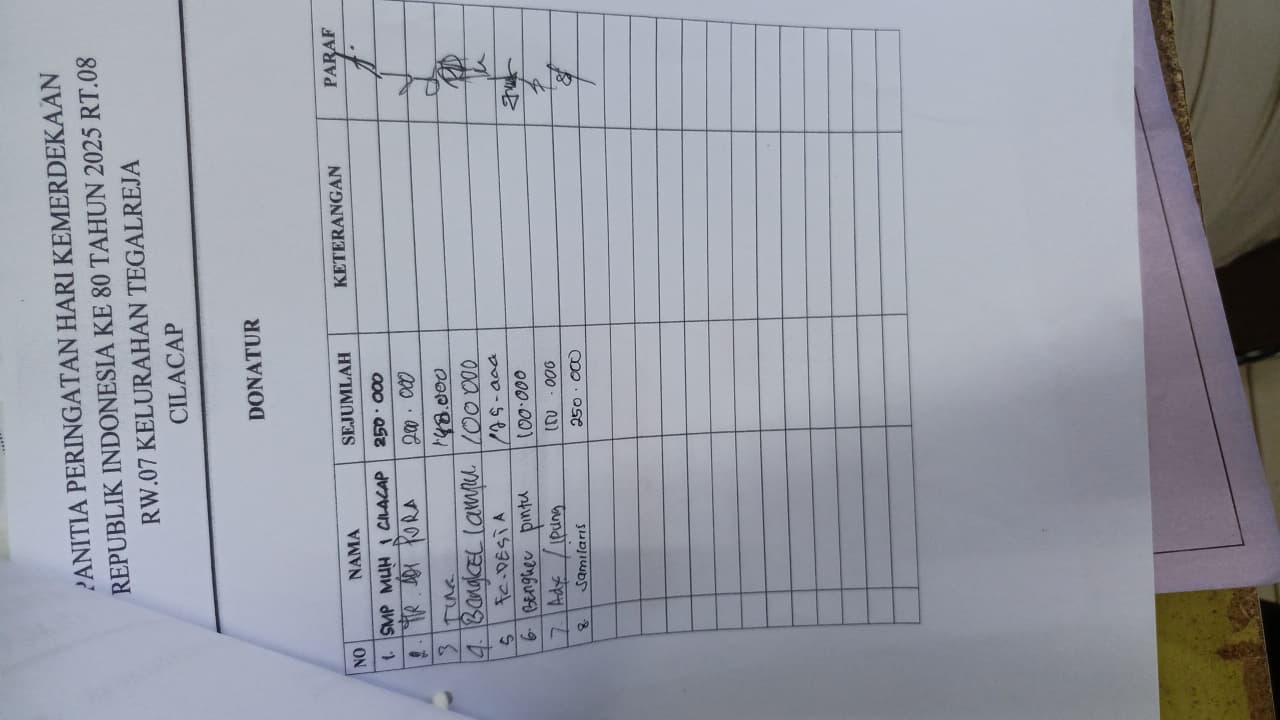 PANITIA PERINGATAN HARI KEMERDEKAAN
REPUBLIK INDONESIA KE 80 TAHUN 2025 RT.08
RW.07 KELURAHAN TEGALREJA
CILACAP
DONATUR
NO NAMA SEJUMLAH KETERANGAN PARAF
1. SMP MUH 1 CILACAP 250.000
2. PURA 200.000
3
4. BANGKEL LAMPU 100.000
5 FC. DESIA 125.000
6. Bengkel pintu 100.000
7. Ady / Ipung 100.000
8 Samilaris 250.000